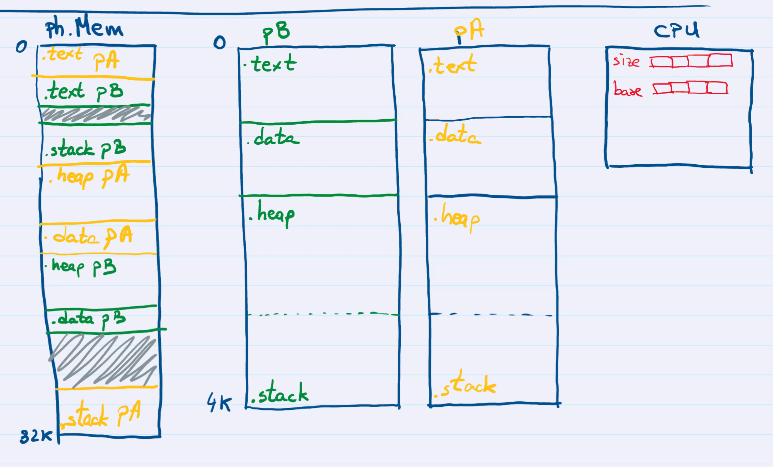 ph.Mem
0
.text pA
.text pB
.stack pB
.heap pA
.data pA
.heap pB
.data pB
.stack pA
32K
pB
0
.text
.data
.heap
.stack
4K
pA
.text
.data
.heap
.stack
CPU
size
base